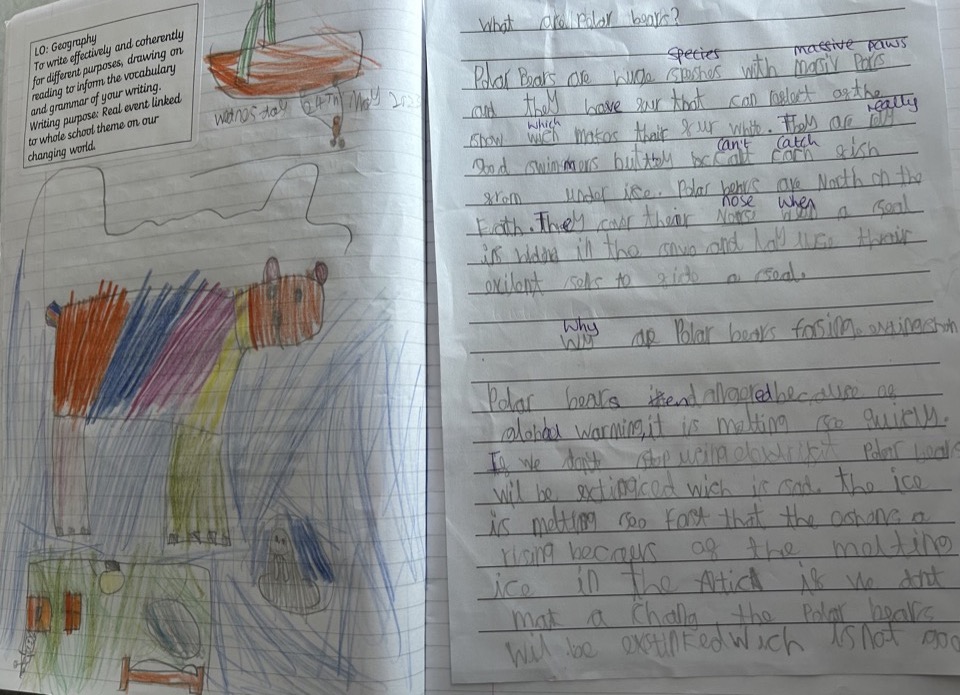 LO: Geography
To write effectively and coherently
for different purposes, drawing on
reading to inform the vocabulary
and grammar of your writing.
Writing purpose: Real event linked
to whole school theme on our
changing world.
Wednesday 24TH May
What are Polar bears?
species massive paws
Polar Bears are huge speshes with masiv Pors
and they have fur that can
really
snow wich makes their fur white. They are rely
which
can't catch
good swimmers but they cant cach fish
from under ice. Polar bears are North on the
nose when
Earth. They cover their a seal
is in the snow and use their
exilent to a seal.
Why
Wy are Polar bears fasing extingshon
Polar bears endangered because of
global warming, it is melting soo quickly.
If we don't stop using Polar bears
wil be extingced wich is sad. the ice
is melting soo fast that the oshons
rising becaus of the melting
ice in the Artick if we dont
mak a chang the Polar bears
wil be extinked wich is not goo